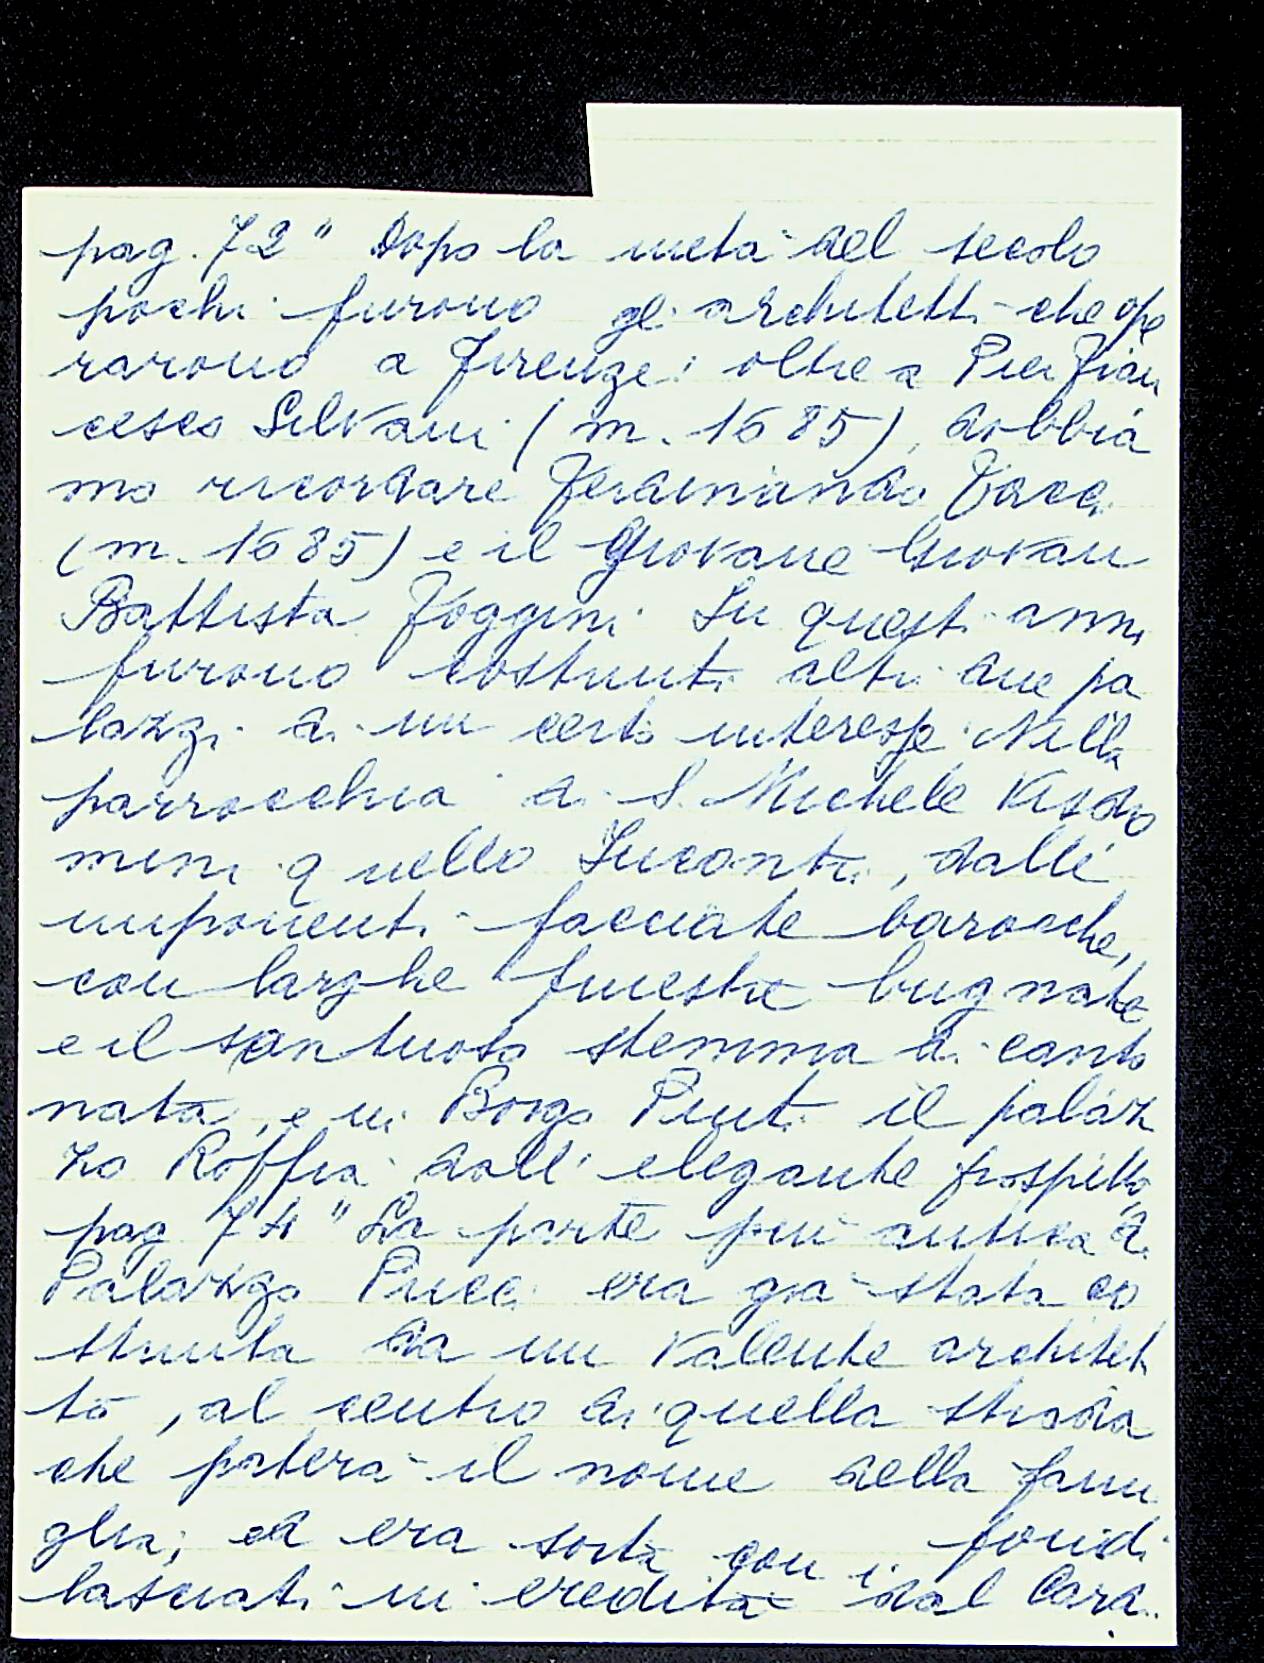 pag. 72 " Dopo la metà del secolo
pochi furono gli architetti che ope
rarono a Firenze: oltre a Pier Fran
cesco Silvani (m. 1685), dobbia
mo ricordare Ferdinando Tacca
(m. 1685) e il giovane Giovan
Battista Foggini. In questi anni
furono costruiti altri due pa
lazzi di un certo interesse. Nella
parrocchia di S. Michele Visdo
mini quello Incontri, dalle
imponenti facciate barocche,
con larghe finestre bugnate
e il santuoso stemma di canto
nata, e in Borgo Pinti il palaz
zo Roffia dall' elegante prospetto,
pag 74 " La parte più antica di
Palazzo Pucci era già stata co
struita da un valente architet
to, al centro di quella strada
che poterà il nome della fami
glia; ed era sorta con i fondi
lasciati in eredità dal Card.